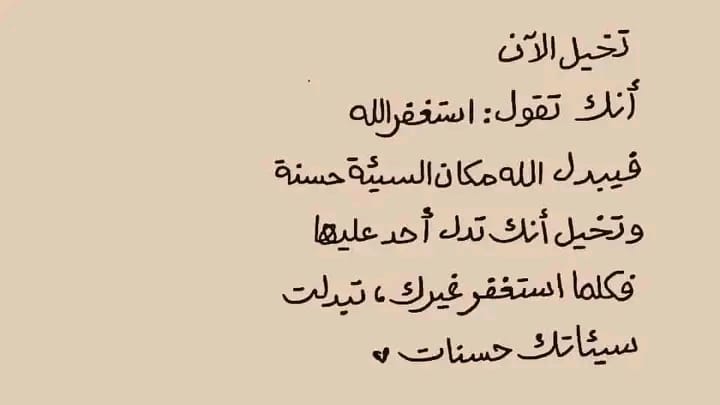 تخيل الآن
أنك تقول: استغفرالله
فيبدل الله مكان السيئة حسنة
وتخيل أنك تدل أحد عليها
فكلما استغفر غيرك، تبدلت
سيئاتك حسنات